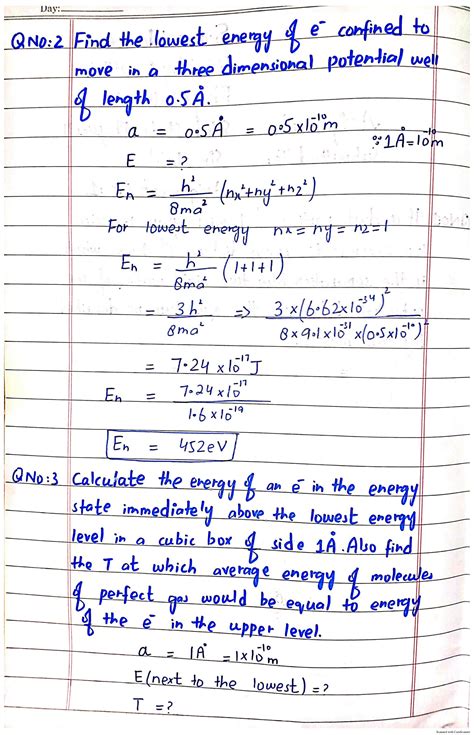 Day:
Q NO:2 Find the lowest energy of e⁻ confined to
move in a three dimensional potential well
of length 0.5Å.
a = 0.5Å = 0.5x10⁻¹⁰m ∵ 1Å=10⁻¹⁰m
E = ?
En = h²/8ma² (nx²+ny²+nz²)
For lowest energy nx = ny = nz = 1
En = h²/8ma² (1+1+1)
= 3h²/8ma² => 3x(6.62x10⁻³⁴)²/8x9.1x10⁻³¹x(0.5x10⁻¹⁰)²
= 7.24 x10⁻¹⁷J
En = 7.24x10⁻¹⁷/1.6x10⁻¹⁹
En = 452eV
Q NO:3 Calculate the energy of an e⁻ in the energy
state immediately above the lowest energy
level in a cubic box of side 1Å. Also find
the T at which average energy of molecules
of perfect gas would be equal to energy
of the e⁻ in the upper level.
a = 1Å = 1x10⁻¹⁰m
E(next to the lowest) = ?
T = ?